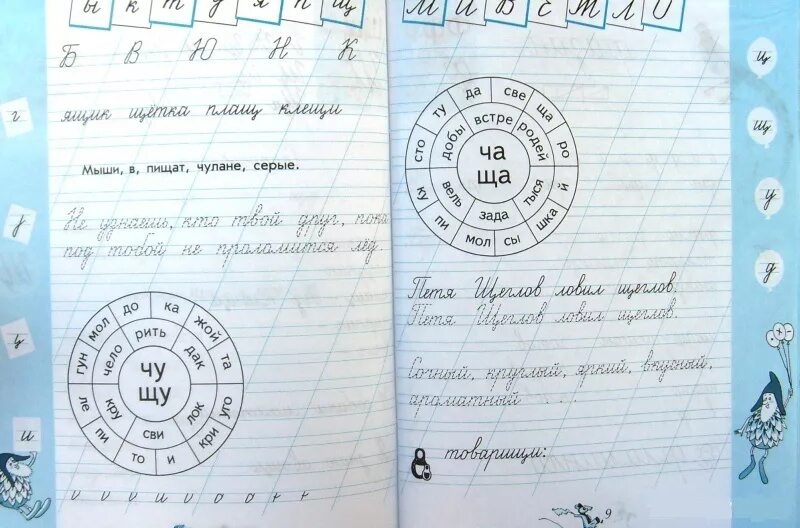 ы к т у я п щ
Б В Ю Н К
ящик щётка плащ клещи
Мыши, в, пищат, чулане, серые.
Не узнаешь, кто твой друг, пока
под тобой не проломится лёд.
до ка жой та уго кри и то пи ле гун мол
рить дак лок сви кру чело
чу
щу
г
у
ц
и
М И В Е Т Л О
да све ща ро й шка сы мол пи ку сто ту
встре родей тыся зада вель добы
ча
ща
Петя Щеглов ловил щеглов.
Петя Щеглов ловил щеглов.
Сочный, круглый, яркий, вкусный,
ароматный . . .
товарищи:
9
ц
щ
у
д